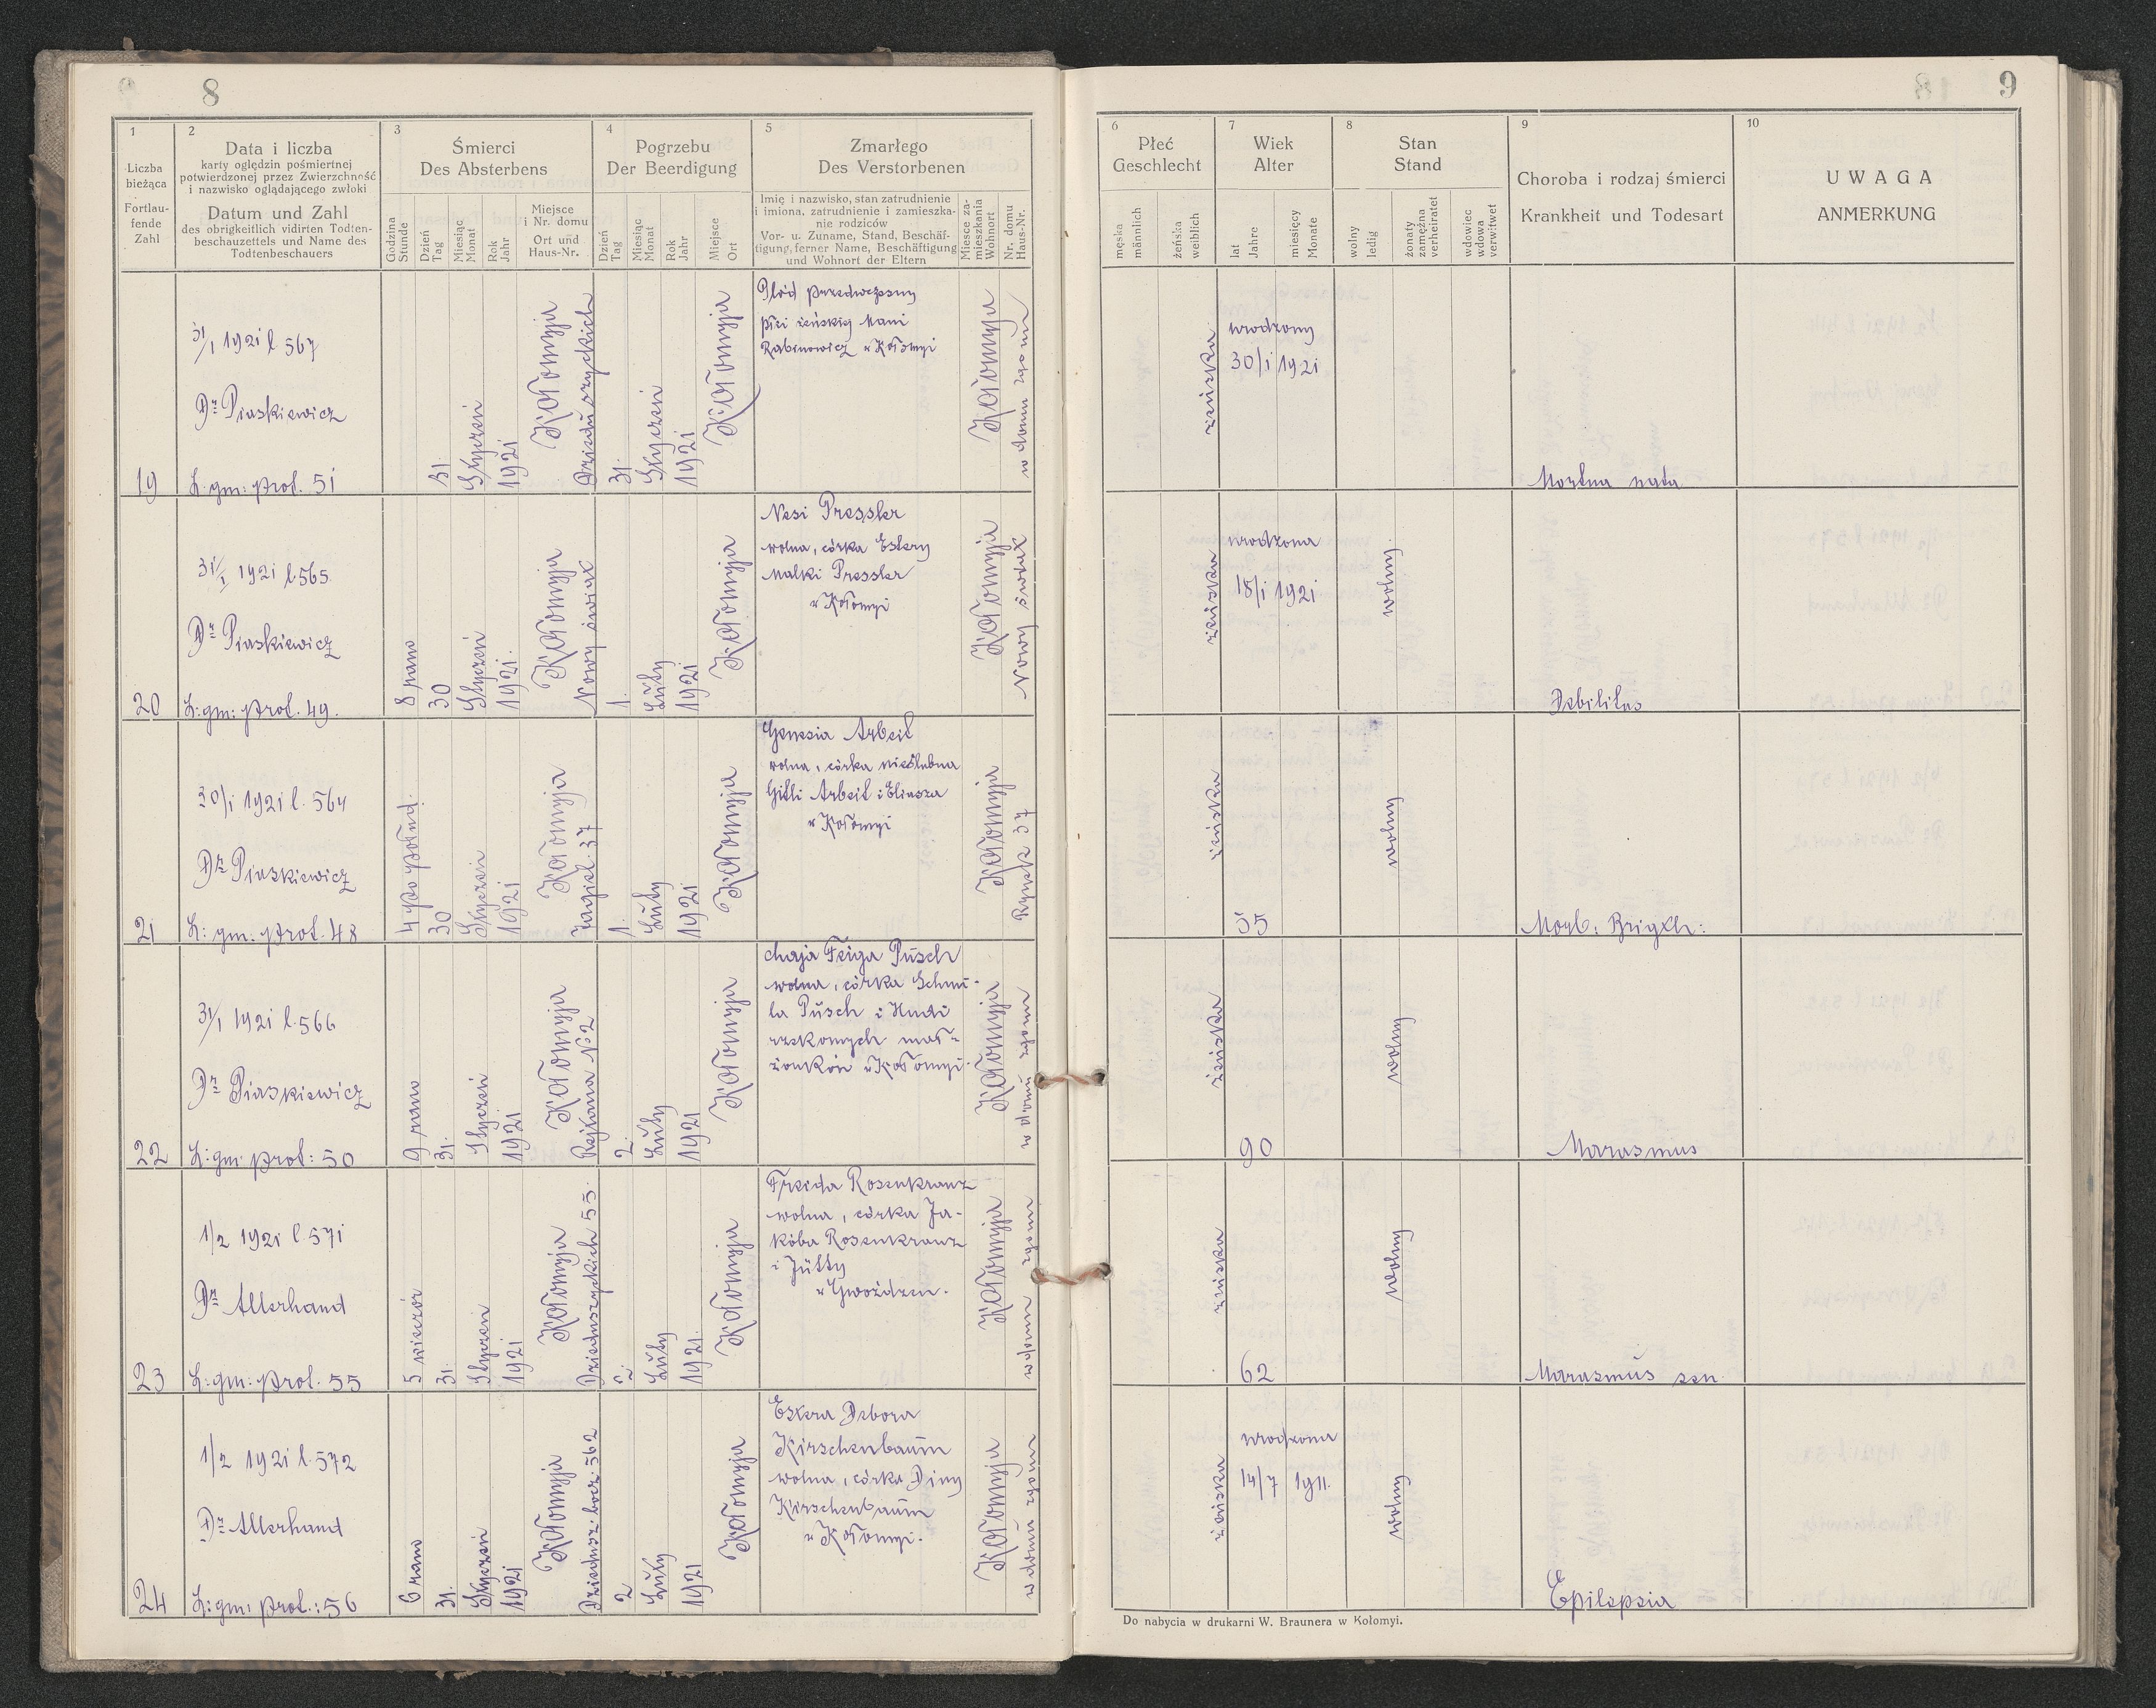 8
1
Liczba
bieżąca
Fortlau-
fende
Zahl
2
Data i liczba
karty oględzin pośmiertnej
potwierdzonej przez Zwierzchność
i nazwisko oglądającego zwłoki
Datum und Zahl
des obrigkeitlich vidirten Todten-
beschauzettels und Name des
Todtenbeschauers
3
Śmierci
Des Absterbens
Godzina
Stunde
Dzień
Tag
Miesiąc
Monat
Rok
Jahr
Miejsce
i Nr. domu
Ort und
Haus-Nr.
4
Pogrzebu
Der Beerdigung
Dzień
Tag
Miesiąc
Monat
Rok
Jahr
Miejsce
Ort
5
Zmarłego
Des Verstorbenen
Imię i nazwisko, stan zatrudnienie
i imiona, zatrudnienie i zamieszka-
nie rodziców
Vor- u. Zuname, Stand, Beschäf-
tigung, ferner Name, Beschäftigung
und Wohnort der Eltern
Miesce za-
mieszkania
Wohnort
Nr. domu
Haus-Nr.
19
31/1 1921 l 567
Dr Piaskiewicz
L: gm: prot. 51
31.
Styczeń
1921
Kołomyja
Dzieduszyckich
31.
Styczeń
1921
Kołomyja
Płód przedwczesny
płci żeńskiej Mani
Rabinowicz w Kołomyi
Kołomyja
w domu zgonu
20
31/1 1921 l 565.
Dr Piaskiewicz
L: gm: prot. 49.
8 rano
30
Styczeń
1921.
Kołomyja
Nowy świat
1.
Luty
1921
Kołomyja
Nesi Pressler
wolna, córka Estery
Malki Pressler
w Kołomyi
Kołomyja
Nowy świat
21
30/1 1921 l. 564
Dr Piaskiewicz
L: gm: prot. 48
4 po połud.
30
Styczeń
1921
Kołomyja
Jagiel. 37
1.
Luty
1921
Kołomyja
Genesia Arbeit
wolna, córka nieślubna
Gitli Arbeit i Eliasza
w Kołomyi
Kołomyja
Rynek 37
22
31/1 1921 l. 566
Dr Piaskiewicz
L: gm: prot: 50
9 rano
31.
Styczeń
1921
Kołomyja
Rejtana No 2
2.
Luty
1921
Kołomyja
Chaja Feiga Pusch
wolna, córka Schmu-
la Pusch i Hudi
rzekomych mał-
żonków w Kołomyi.
Kołomyja
w domu zgonu
23
1/2 1921 l 571
Dr Allerhand
L: gm: prot. 55
5 wieczór
31.
Styczeń
1921
Kołomyja
Dzieduszyckich 55.
2.
Luty
1921.
Kołomyja
Freida Rosenkranz
wolna, córka Ja-
kóba Rosenkranz
i Jutty
w Gwoźdzcu.
Kołomyja
w domu zgonu
24
1/2 1921 l. 572
Dr Allerhand
L: gm: prot.: 56
6 rano
31.
Styczeń
1921
Kołomyja
Dziedusz. bocz. 562
2
Luty
1921
Kołomyja
Estera Debora
Kirschenbaum
wolna, córka Diny
Kirschenbaum
w Kołomyi.
Kołomyja
w domu zgonu
9
6
Płeć
Geschlecht
męska
männlich
żeńska
weiblich
7
Wiek
Alter
lat
Jahre
miesięcy
Monate
8
Stan
Stand
wolny
ledig
żonaty
zamężna
verheiratet
wdowiec
wdowa
verwitwet
9
Choroba i rodzaj śmierci
Krankheit und Todesart
10
UWAGA
ANMERKUNG
żeńska
urodzony
30/1 1921
Mortua nata
żeńska
urodzona
18/1 1921
wolny
Debilitas
żeńska
55
wolny
Morb: Brigth:
żeńska
90
wolny
Marasmus
żeńska
62
wolny
Marasmus sen.
żeńska
urodzona
14/7 1911.
wolny
Epilepsia
Do nabycia w drukarni W. Braunera w Kołomyi.